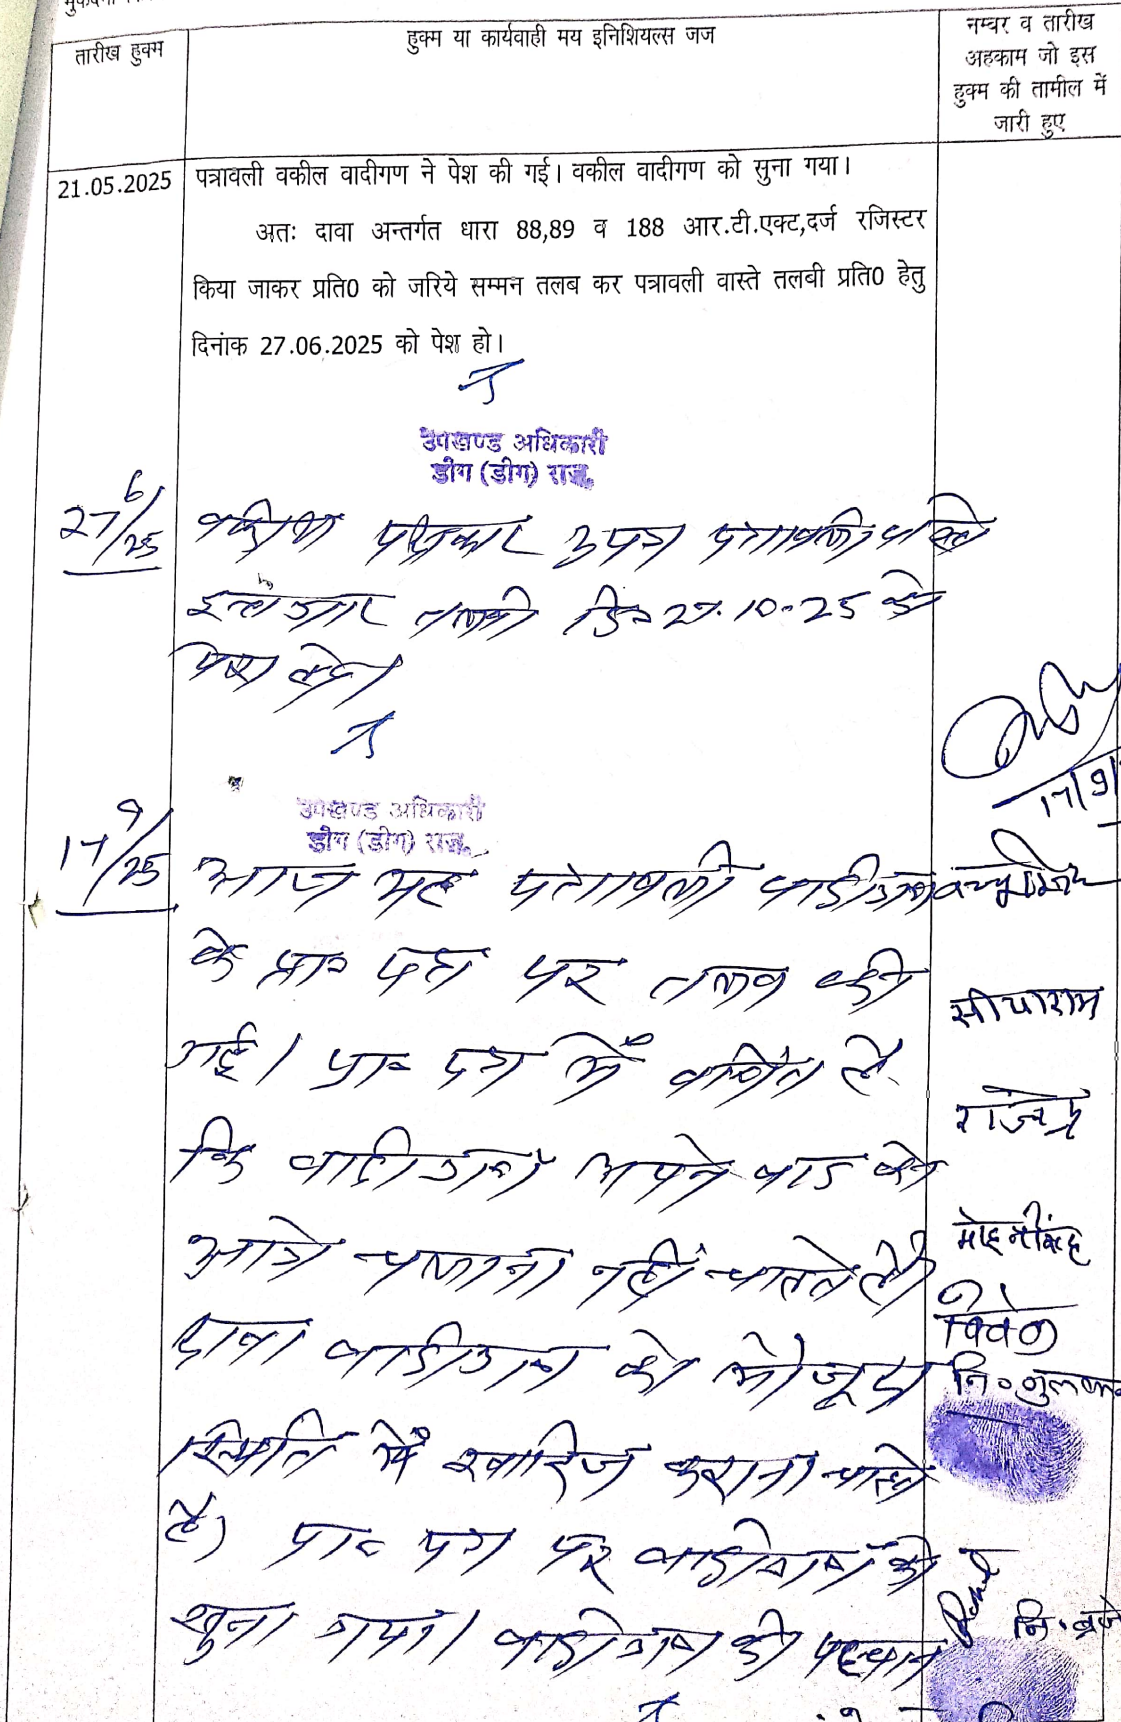 तारीख हुक्म
हुक्म या कार्यवाही मय इनिशियल्स जज
नम्बर व तारीख
अहकाम जो इस
हुक्म की तामील में
जारी हुए
21.05.2025
पत्रावली वकील वादीगण ने पेश की गई। वकील वादीगण को सुना गया।
अतः दावा अन्तर्गत धारा 88,89 व 188 आर.टी.एक्ट,दर्ज रजिस्टर
किया जाकर प्रति0 को जरिये सम्मन तलब कर पत्रावली वास्ते तलबी प्रति0 हेतु
दिनांक 27.06.2025 को पेश हो।
उपखण्ड अधिकारी
डीग (डीग) राज.
27/6/25
वकील पक्षकार उप० पत्रावली वास्ते
इन्तजार तलबी दि० 27.10-25 को
पेश हो।
उपखण्ड अधिकारी
डीग (डीग) राज.
17/9/25
आज यह पत्रावली वादीगण
के प्रा० पत्र पर तलब की
गई। प्रा० पत्र में वर्णित है
कि वादीगण अपने वाद को
आगे चलाना नहीं चाहते है।
दावा वादीगण को मौजूदा
स्थिति में खारिज कराना चाहते
है। प्रा० पत्र पर वादीगण को
सुना गया। वादीगण की पहचान
17/9/
सीयाराम
राजेन्द्र
मोहनसिंह
नि०
नि.